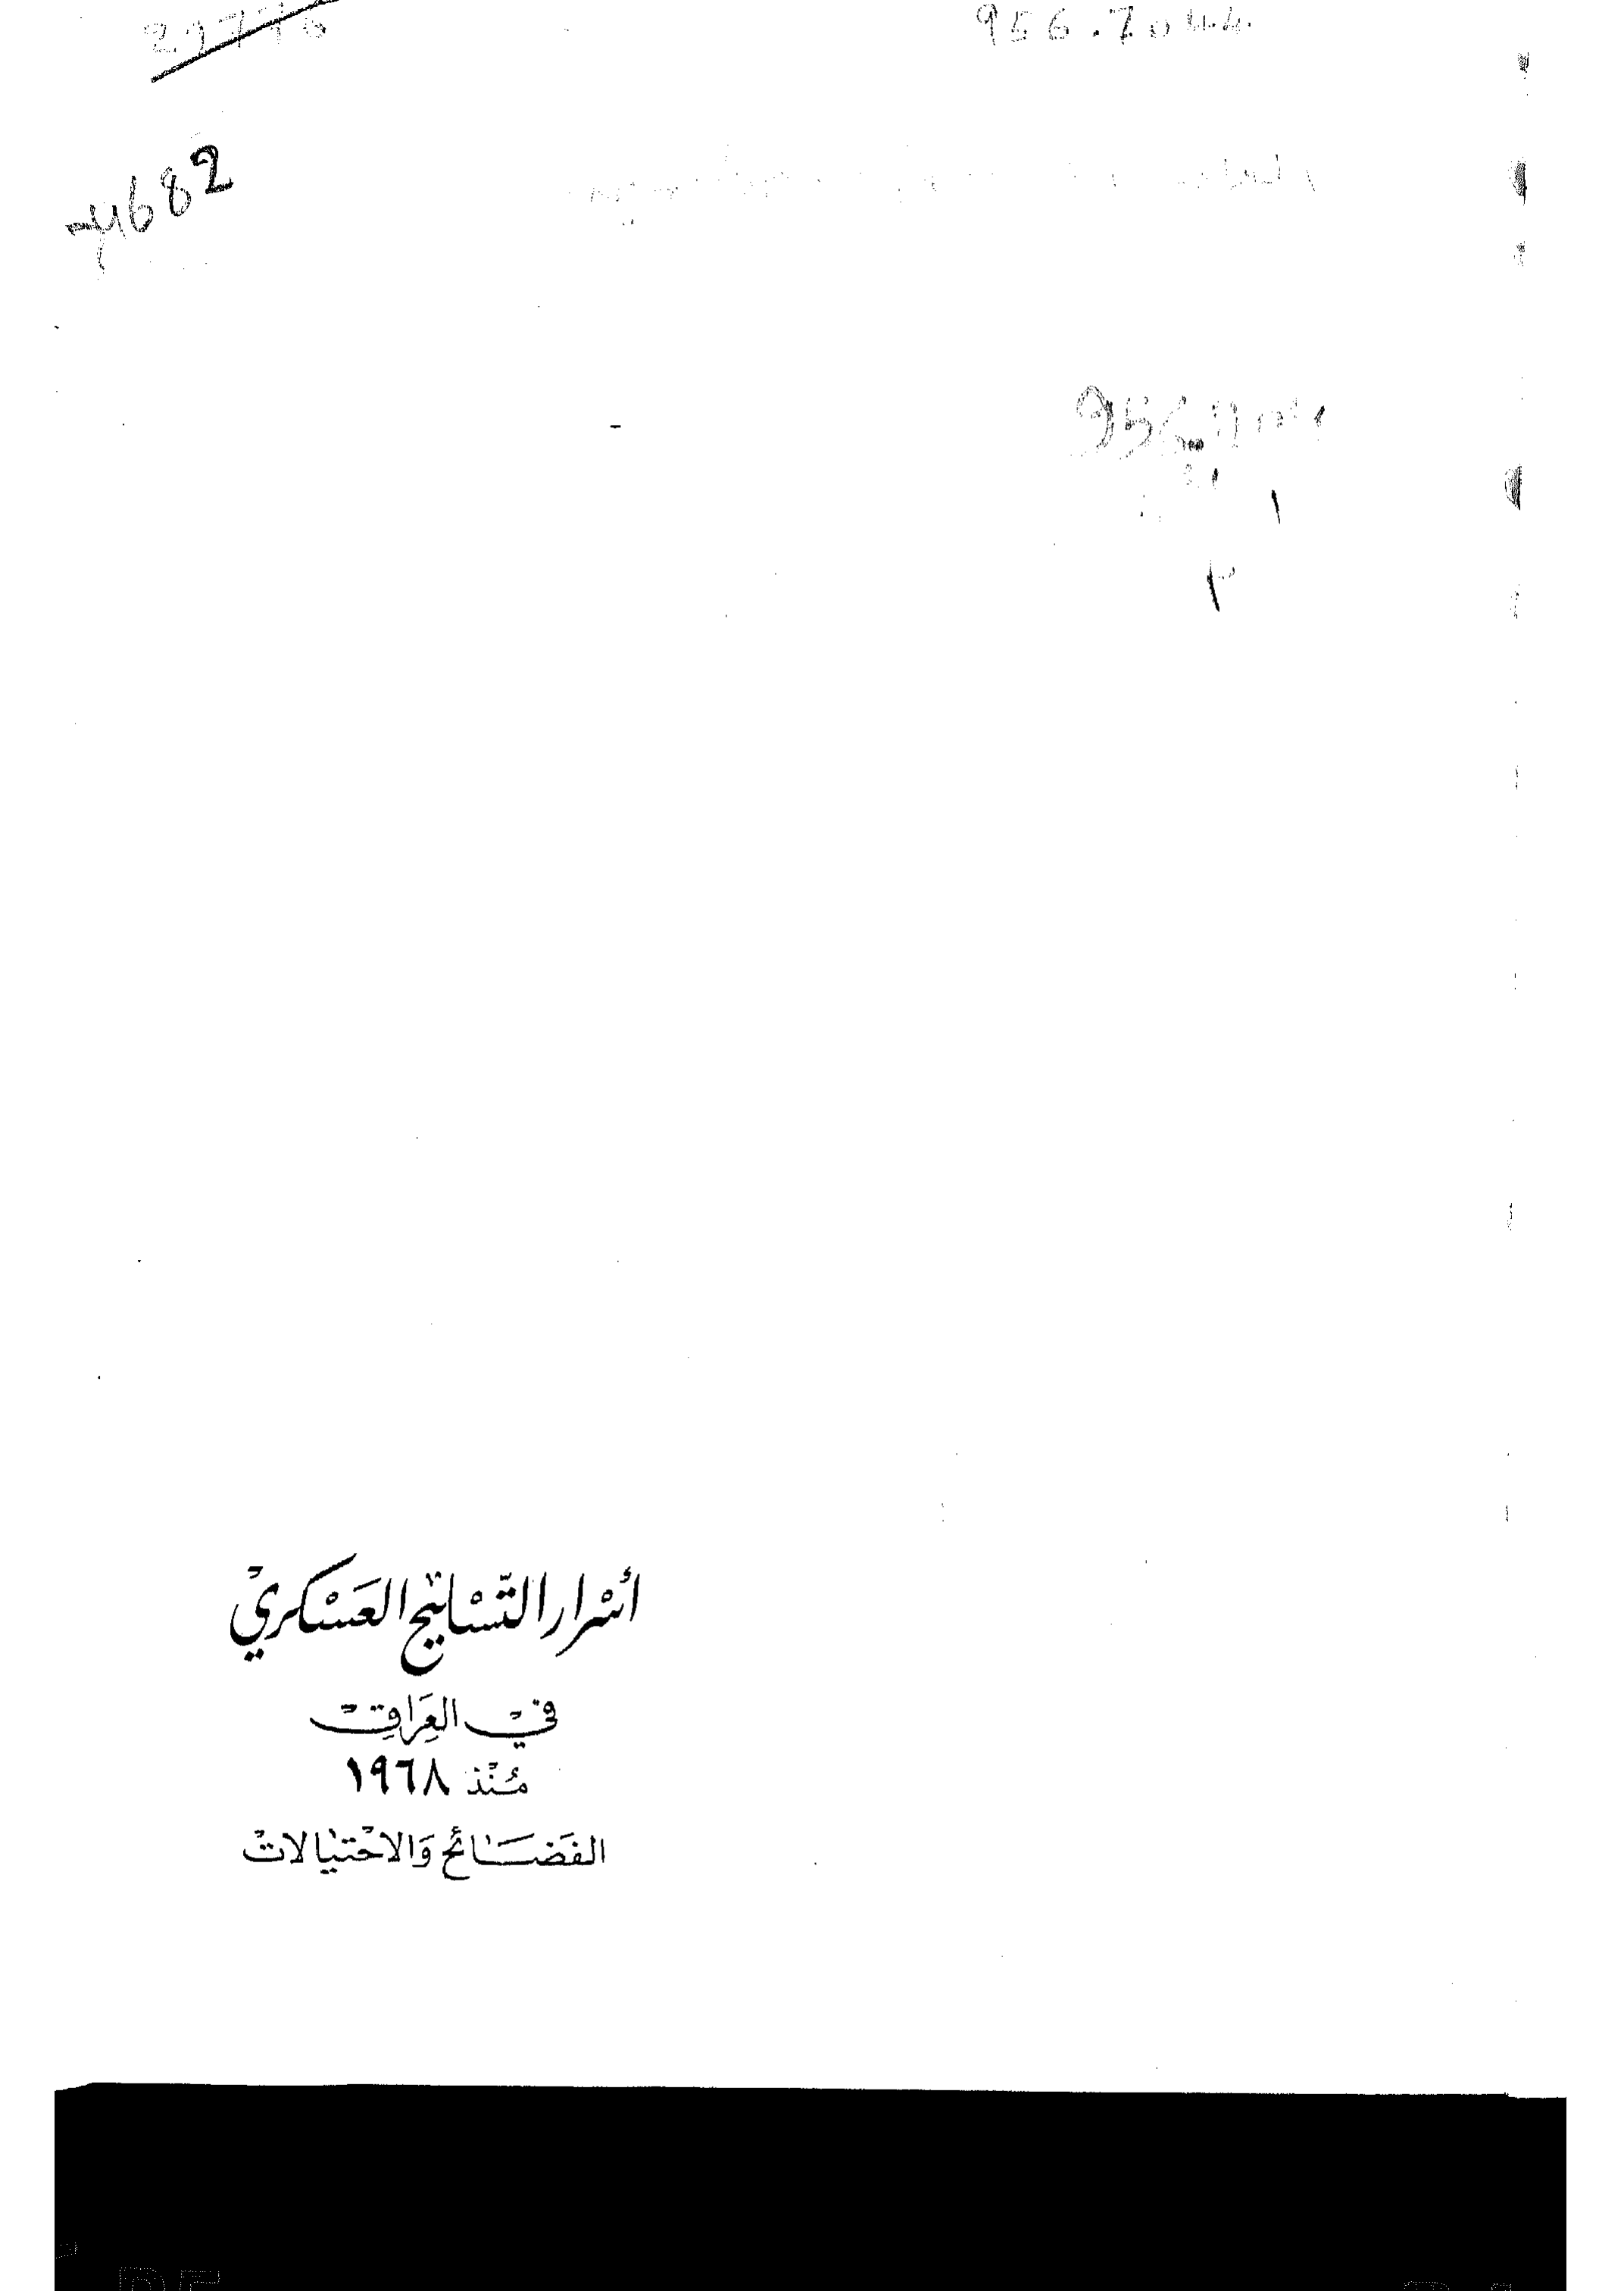 29776
956.7044
4682
أسرار التسليح العسكري
في العراق
منذ ١٩٦٨
الفضائح والاحتيالات